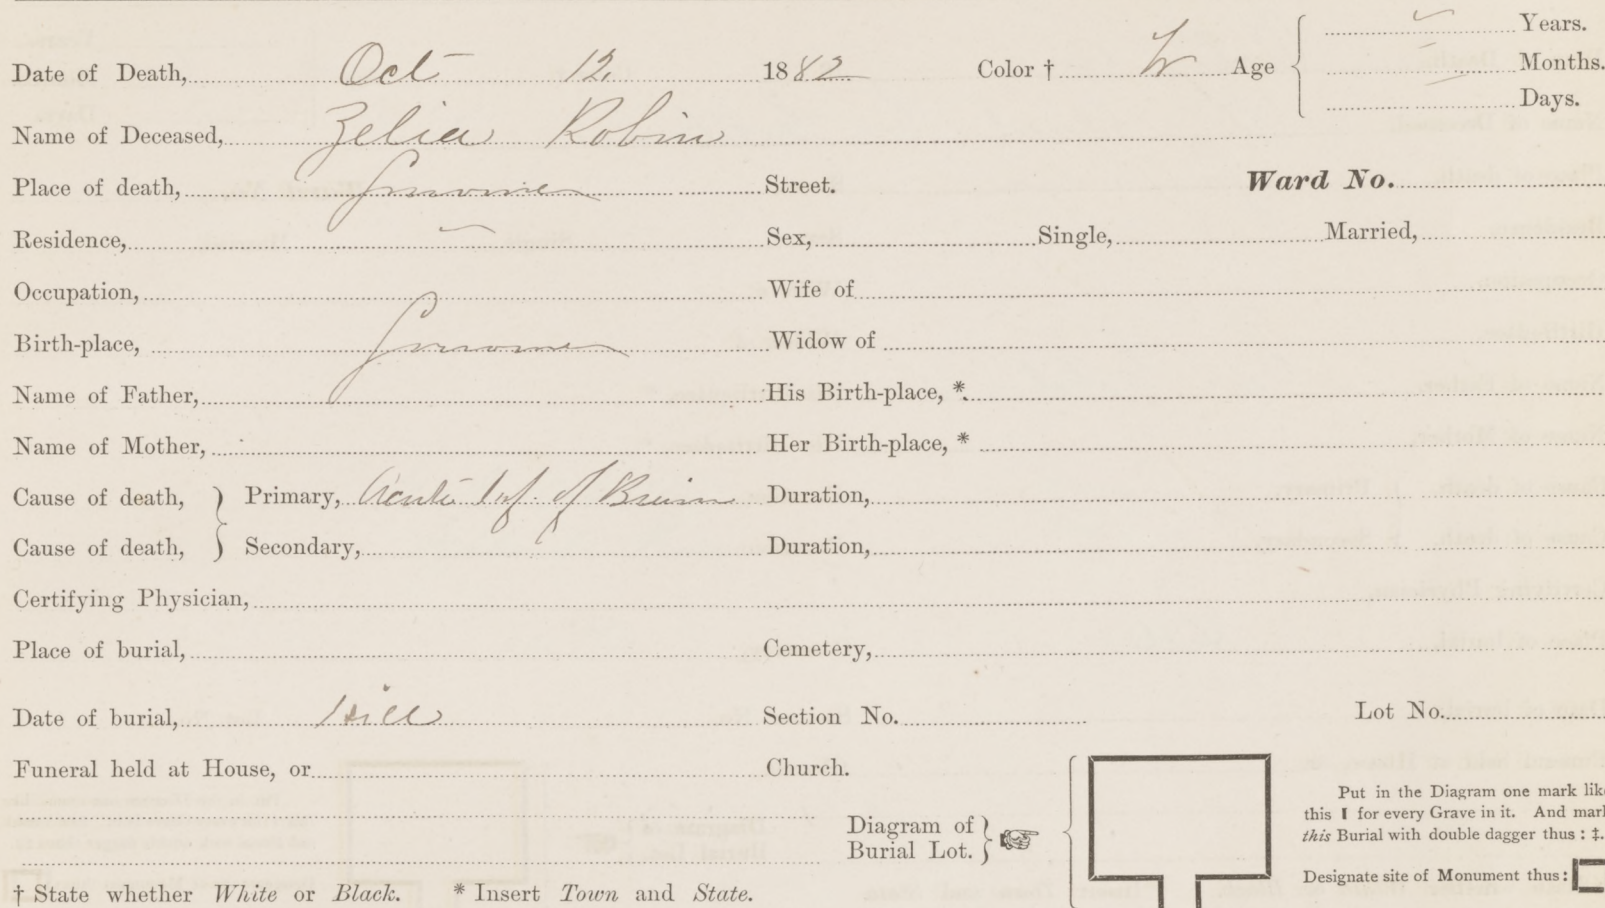 Years.
Date of Death, Oct 12. 1882 Color † W Age Months.
Days.
Name of Deceased, Zelia Robin
Place of death, Street. Ward No.
Residence, Sex, Single, Married,
Occupation, Wife of
Birth-place, Widow of
Name of Father, His Birth-place, *
Name of Mother, Her Birth-place, *
Cause of death, } Primary, Acute Inf. of Brain Duration,
Cause of death, } Secondary, Duration,
Certifying Physician,
Place of burial, Cemetery,
Date of burial, Hill Section No. Lot No.
Funeral held at House, or Church.
Put in the Diagram one mark like
this I for every Grave in it. And mark
this Burial with double dagger thus : ‡.
Diagram of
Burial Lot.
Designate site of Monument thus:
† State whether White or Black. * Insert Town and State.